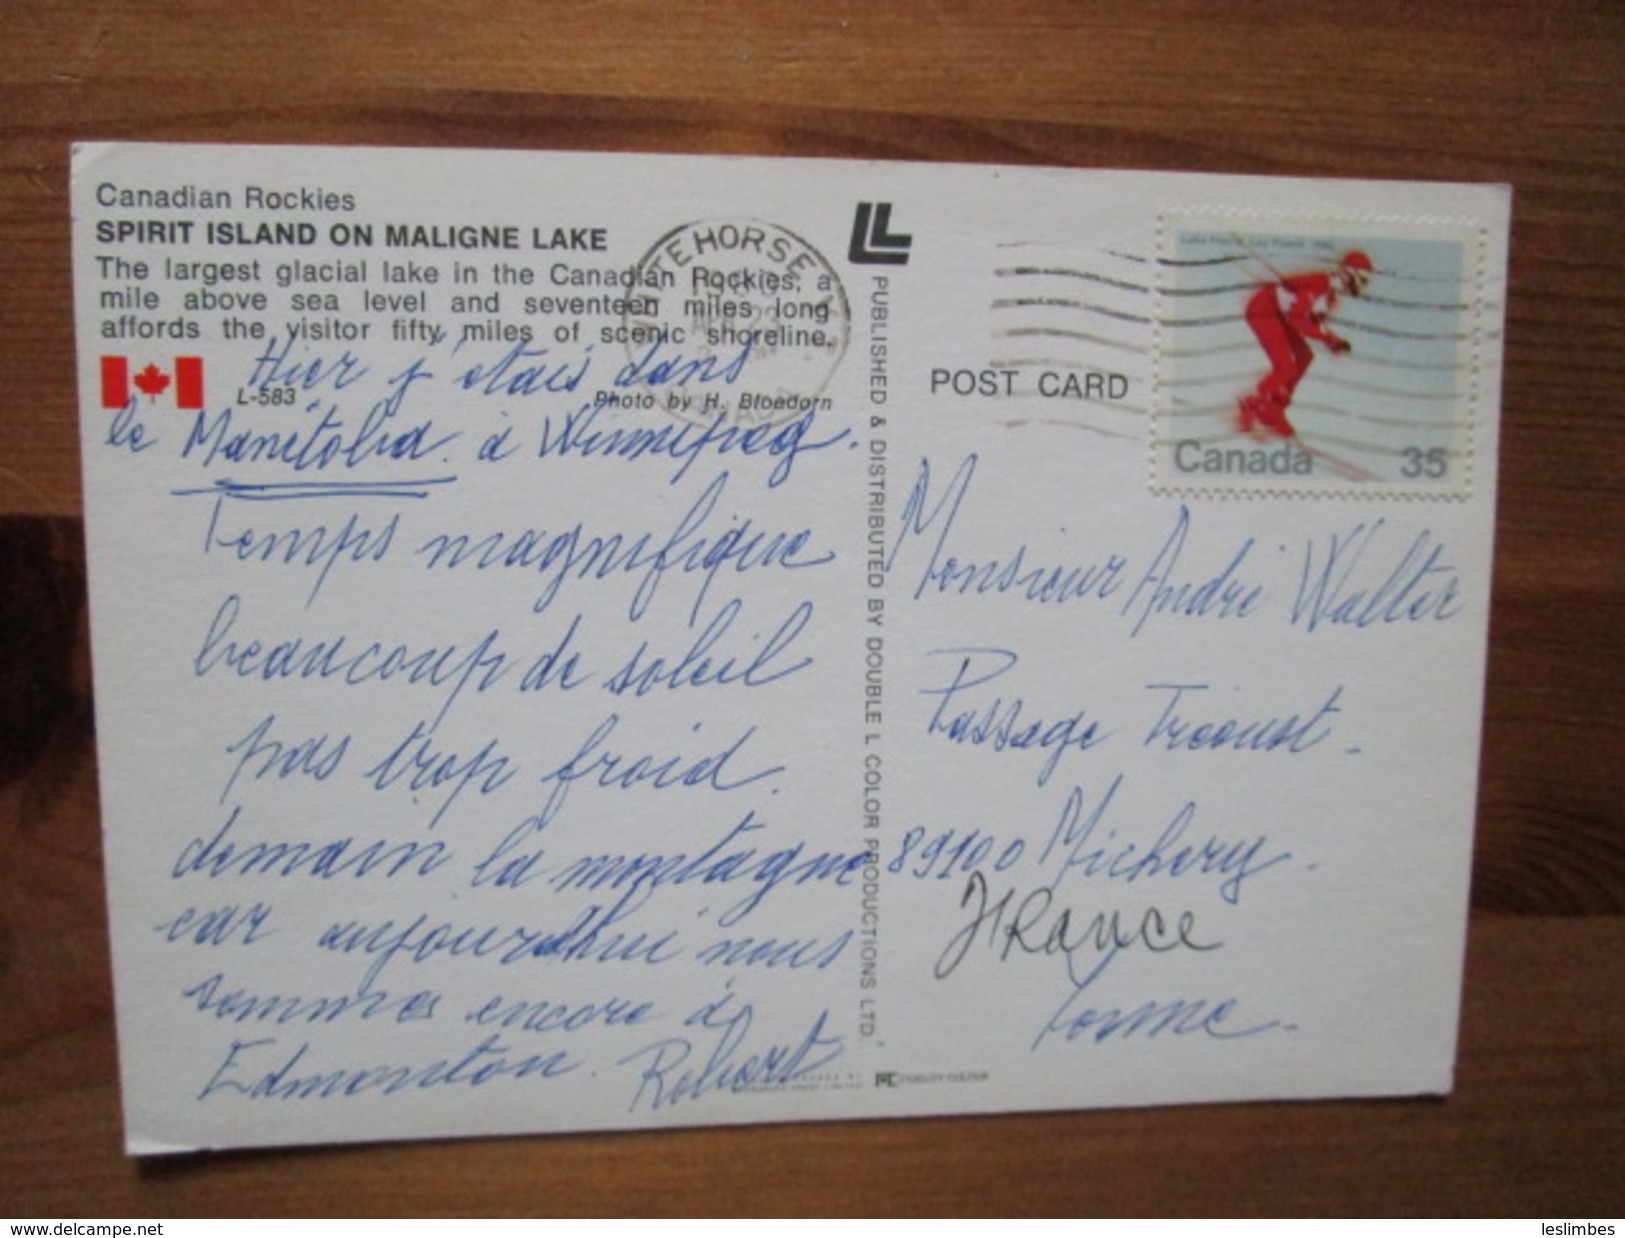 Canadian Rockies
SPIRIT ISLAND ON MALIGNE LAKE
The largest glacial lake in the Canadian Rockies, a
mile above sea level and seventeen miles long
affords the visitor fifty miles of scenic shoreline.
L-583
Photo by H. Bloedorn
Hier j'étais dans
le Manitoba. à Winnipeg.
Temps magnifique
beaucoup de soleil
pas trop froid.
demain la montagne
car aujourd'hui nous
sommes encore à
Edmonton. Robert
PUBLISHED & DISTRIBUTED BY DOUBLE L COLOR PRODUCTIONS LTD.
TEHORSE
POST CARD
Canada 35
Monsieur André Walter
Passage Tréoust.
89100 Michery.
FRANCE
Yonne.
FIDELITY COLOUR
www.delcampe.net
leslimbes